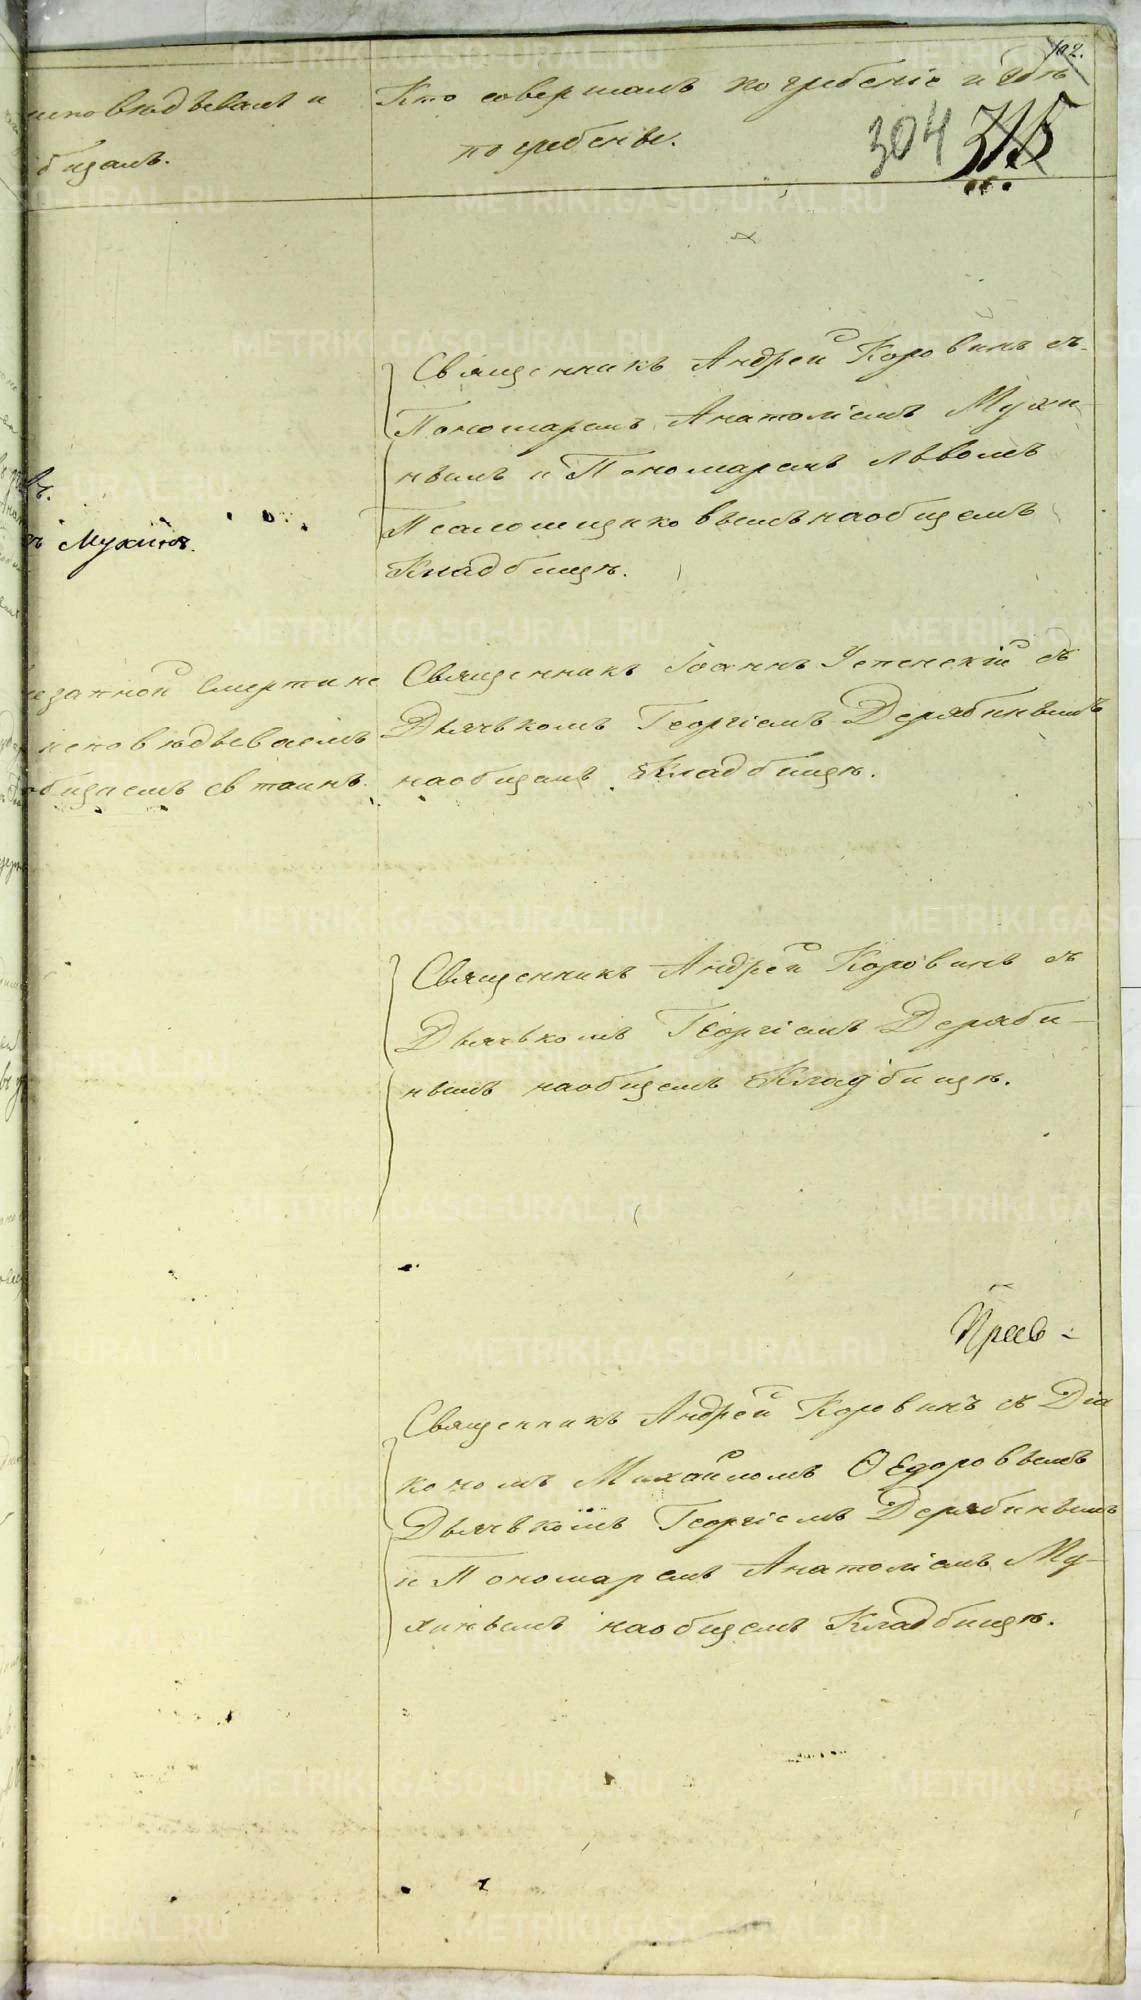 102.
304 315
исповѣдывалъ и
бщалъ.
Кто совершалъ погребеніе и гдѣ
погребены.
Священникъ Андрей Коровинъ съ
Пономаремъ Анатоліемъ Мухи-
нымъ и Пономаремъ Львомъ
Псаломщиковымъ на общемъ
Кладбищѣ.
въ.
Мухинъ.
незапной Смерти не
исповѣдываемъ
общаемъ св таинъ.
Священникъ Іоаннъ Успенскій съ
Дьячькомъ Георгіемъ Дерябинымъ
на общемъ Кладбищѣ.
Священникъ Андрей Коровинъ съ
Дьячькомъ Георгіемъ Деряби-
нымъ на общемъ Кладбищѣ.
Священникъ Андрей Коровинъ съ Діа
кономъ Михайломъ Ѳедоровымъ
Дьячькомъ Георгіемъ Дерябинымъ
и Пономаремъ Анатоліемъ Му-
хинымъ на общемъ Кладбищѣ.
METRIKI.GASO-URAL.RU